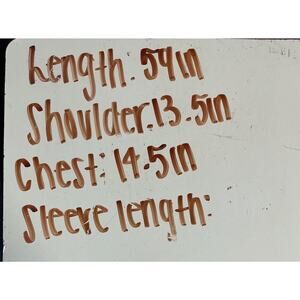 Length. 59in
Shoulder.13.5in
Chest: 14.5in
Sleeve length: